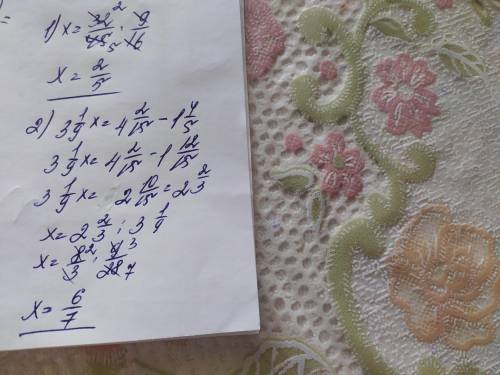 1) x = 32/45 · 9/16 2 5
x = 2/5
2) 3 1/9 x = 4 2/15 - 1 4/5
3 1/9 x = 4 2/15 - 1 12/15
3 1/9 x = 2 10/15 = 2 2/3
x = 2 2/3 : 3 1/9
x = 8/3 · 9/28 2 3 7
x = 6/7